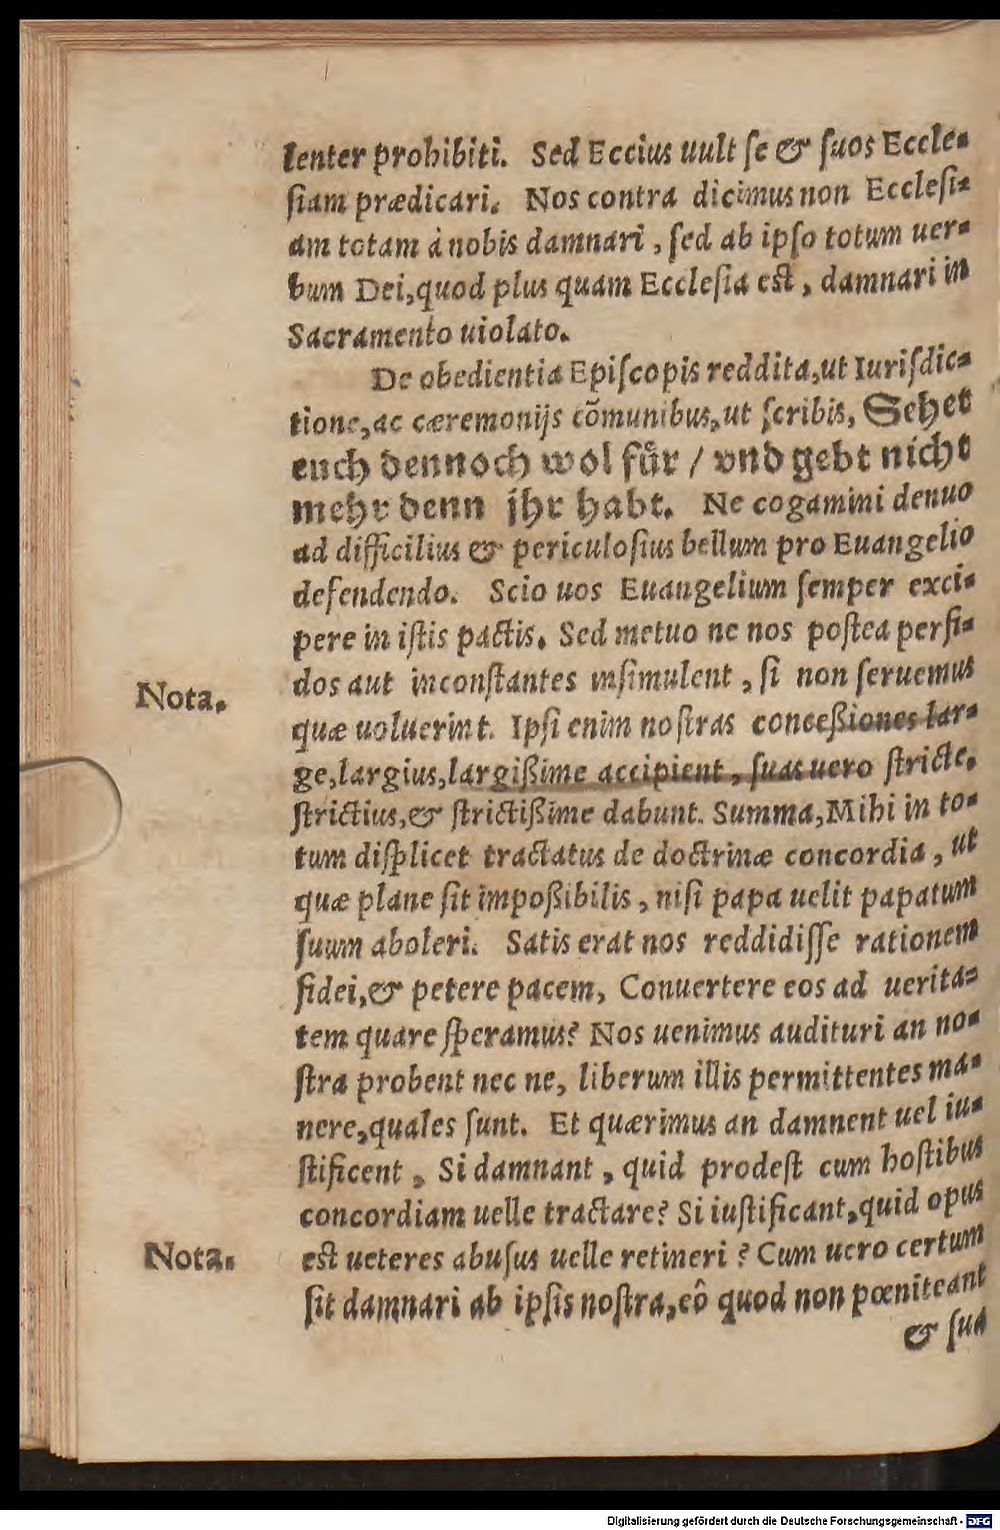 lenter prohibiti. Sed Eccius uult ſe & ſuos Eccle⸗
ſiam prædicari. Nos contra dicimus non Eccleſi⸗
am totam à nobis damnari, ſed ab ipſo totum uer⸗
bum Dei, quod plus quam Eccleſia eſt, damnari in
Sacramento uiolato.
De obedientia Epiſcopis reddita, ut Iuriſdic⸗
tione, ac cæremonijs cõmunibus, ut ſcribis, Sehet
euch dennoch wol fuͤr / vnd gebt nicht
mehr denn jhr habt. Ne cogamini denuo
ad difficilius & periculoſius bellum pro Euangelio
defendendo. Scio uos Euangelium ſemper exci⸗
pere in iſtis pactis. Sed metuo ne nos poſtea perfi⸗
Nota. dos aut inconſtantes inſimulent, ſi non ſeruemus
quæ uoluerint. Ipſi enim noſtras conceßiones lar⸗
ge, largius, largißime accipient, ſuas uero ſtricte,
ſtrictius, & ſtrictißime dabunt. Summa, Mihi in to⸗
tum diſplicet tractatus de doctrinæ concordia, ut
quæ plane ſit impoßibilis, niſi papa uelit papatum
ſuum aboleri. Satis erat nos reddidiſſe rationem
fidei, & petere pacem, Conuertere eos ad uerita⸗
tem quare ſperamus? Nos uenimus audituri an no⸗
ſtra probent nec ne, liberum illis permittentes ma⸗
nere, quales ſunt. Et quærimus an damnent uel iu⸗
ſtificent, Si damnant, quid prodeſt cum hoſtibus
concordiam uelle tractare? Si iuſtificant, quid opus
Nota. eſt ueteres abuſus uelle retineri? Cum uero certum
ſit damnari ab ipſis noſtra, eô quod non pœniteant
& ſua
Digitalisierung gefördert durch die Deutsche Forschungsgemeinschaft - DFG